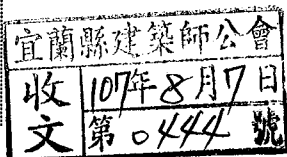 宜蘭縣建築師公會
收文
107年8月7日
第0444號